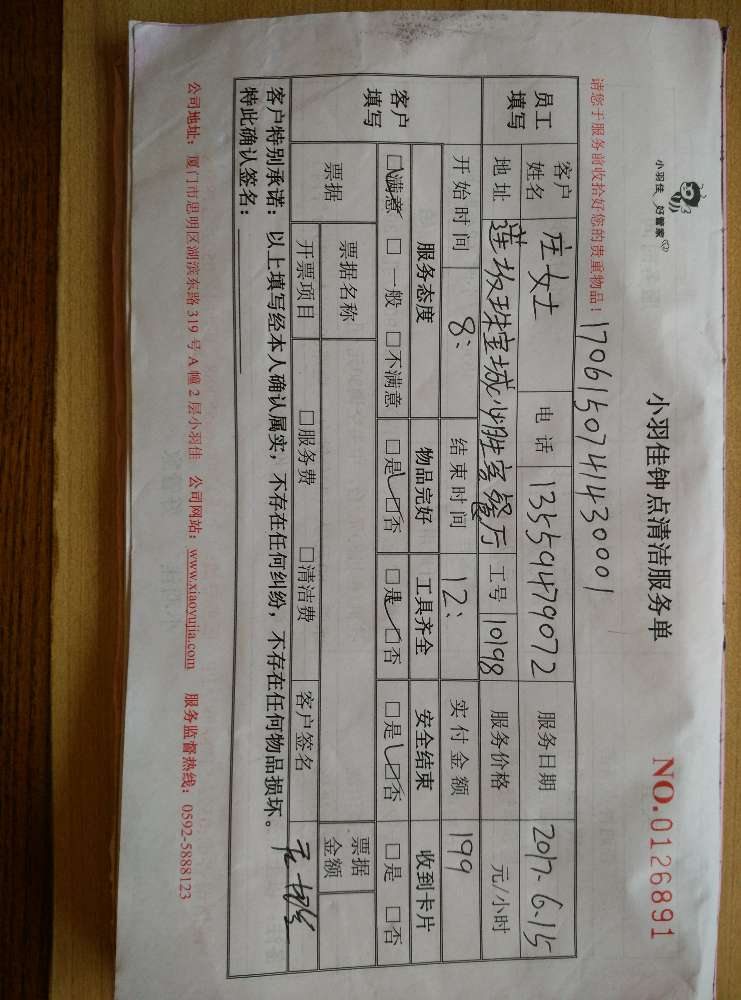 小羽佳 好管家
小羽佳钟点清洁服务单
NO.0126891
请您于服务前收拾好您的贵重物品!
1706150741430001
员工填写
客户姓名 庄女士 电话 13559479072 服务日期 2017.6.15
地址 莲坂珠宝城必胜客餐厅 工号 10198 服务价格 元/小时
开始时间 8: 结束时间 12: 实付金额 199
客户填写
服务态度 物品完好 工具齐全 安全结束 收到卡片
□满意 □一般 □不满意 □是 □否 □是 □否 □是 □否 □是 □否
票据 票据名称 票据金额
开票项目 □服务费 □清洁费 客户签名
客户特别承诺:以上填写经本人确认属实,不存在任何纠纷,不存在任何物品损坏。
特此确认签名:
公司地址:厦门市思明区湖滨东路 319 号 A 幢 2 层小羽佳 公司网站:www.xiaoyujia.com 服务监督热线:0592-5888123